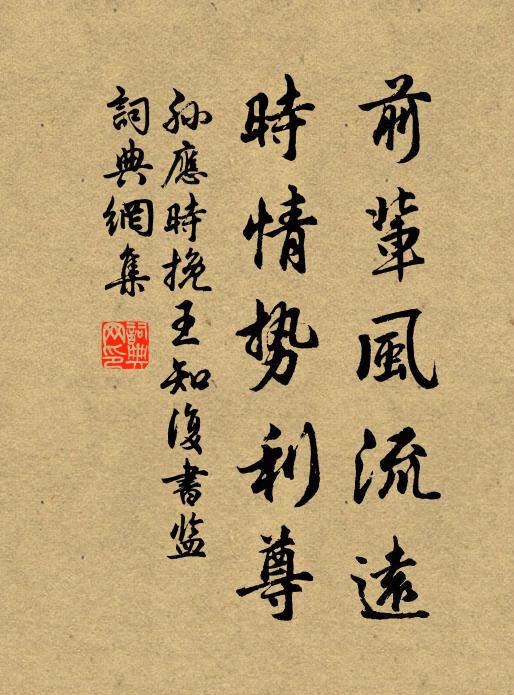 前輩風流遠
時情势利尊
孙應時挽王知復書监
詞典網集
詞典网印